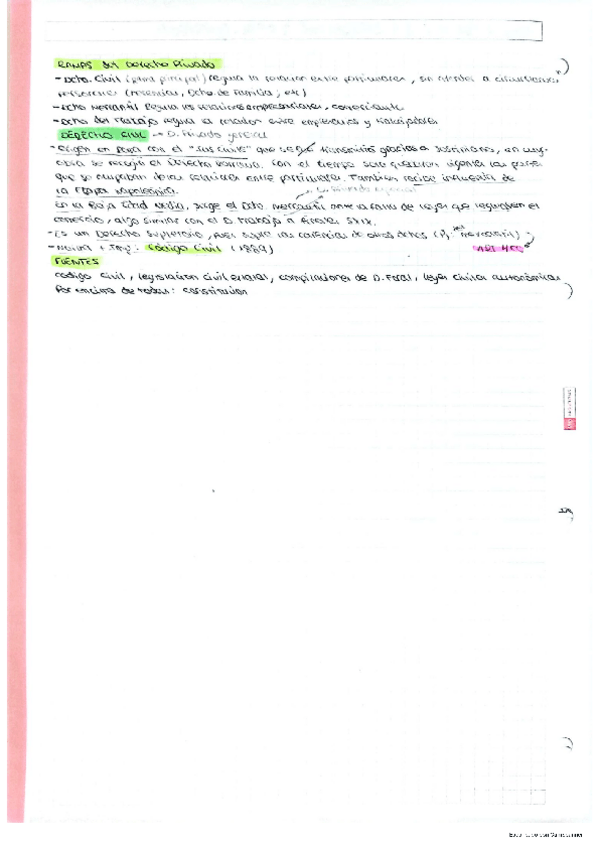 RAMAS del Derecho Privado
- Dcho. Civil (rama principal) regula la relación entre particulares, sin atender a circunstancias
personales (herencias, Dcho de Familia, etc)
- Dcho Mercantil regula las relaciones empresariales, comerciante
- Dcho del Trabajo regula la relación entre empleadores y trabajadores
DERECHO CIVIL → D. Privado general
- Origen en Roma con el "ius civile" que se transmitió gracias a Justiniano, en cuya
obra se recogió el Derecho Romano. Con el tiempo solo quedaron vigentes las partes
que se ocupaban de las relaciones entre particulares. También recibe influencia de
la etapa napoleónica.
En la Baja Edad Media, surge el Dcho mercantil como la rama de leyes que regulaban el
comercio, algo similar con el D. Trabajo a finales S.XIX.
- Es un Derecho supletorio, pues suple las carencias de otros dchos (Dº mercantil)
- Norma + imp: Código Civil (1889) ART 4 CC
FUENTES
Código Civil, legislación civil estatal, compilaciones de D. Foral, leyes civiles autonómicas
Por encima de todas: Constitución